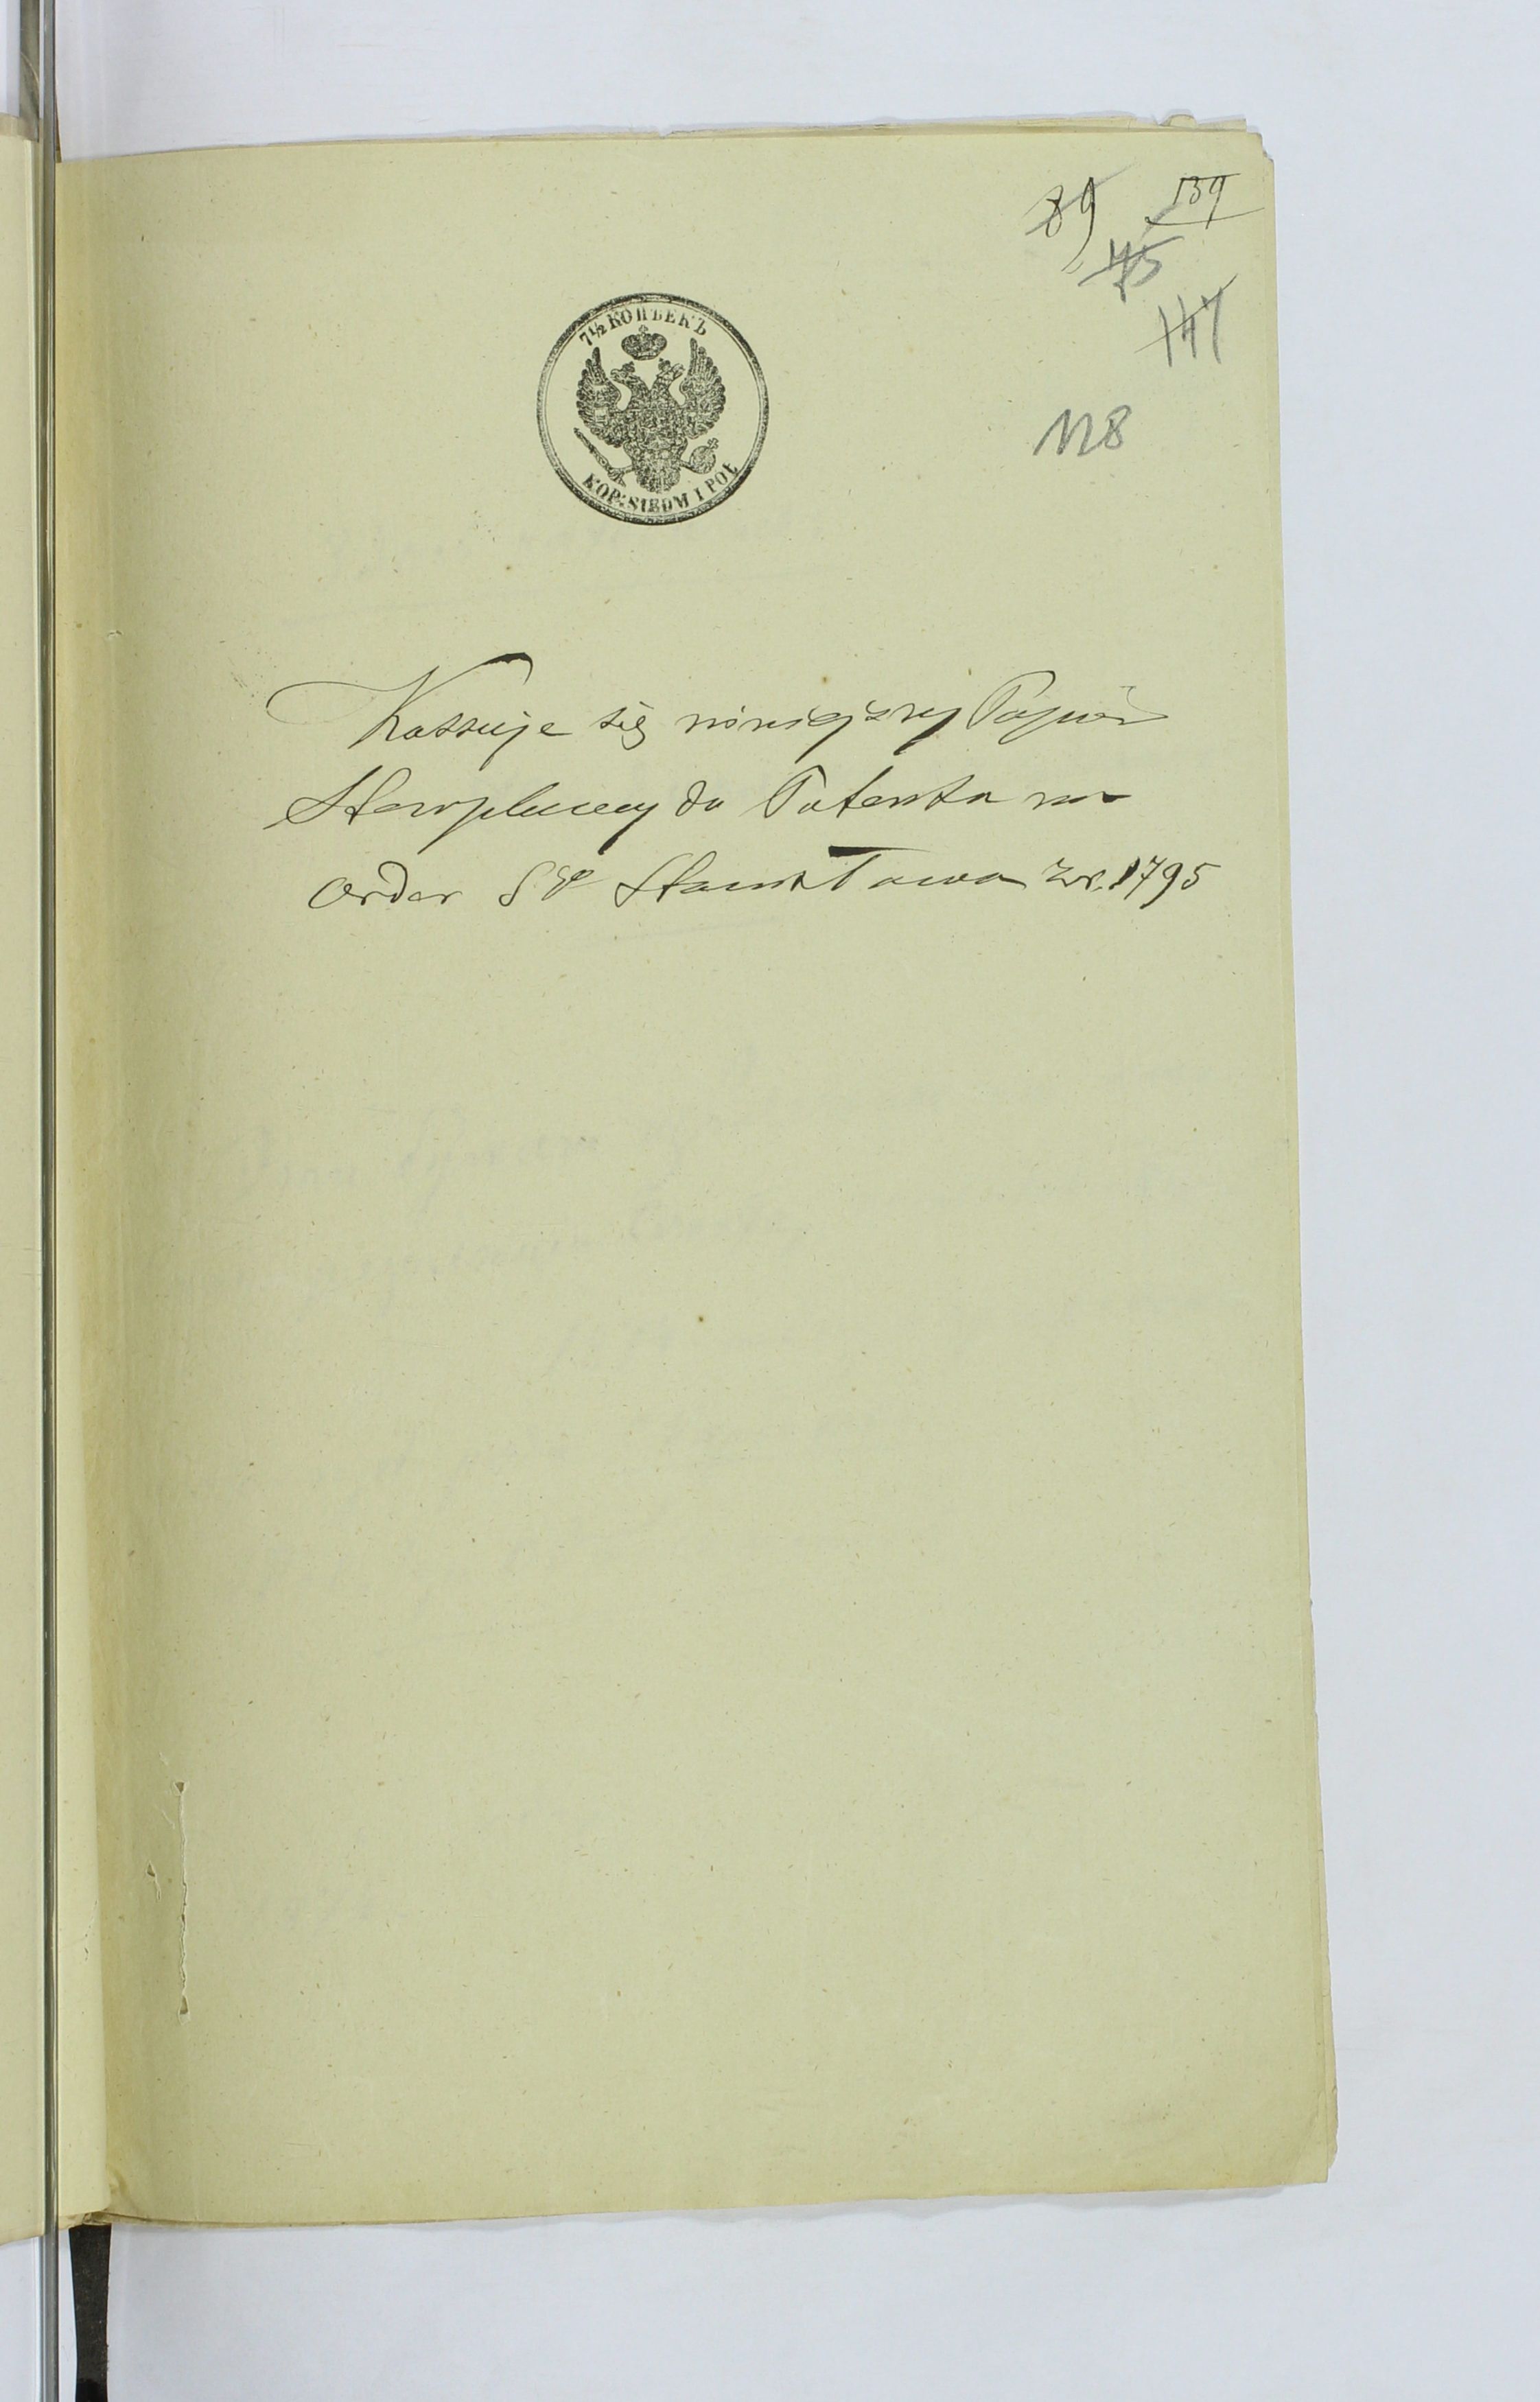 89 139
45
147
7½ КОПѢЕКЪ
128
KOP: SIEDM I POŁ
Kassuje się niniejszy Papier
Stemplowy do Patentu na
Order Sgo Stanisława z r. 1795